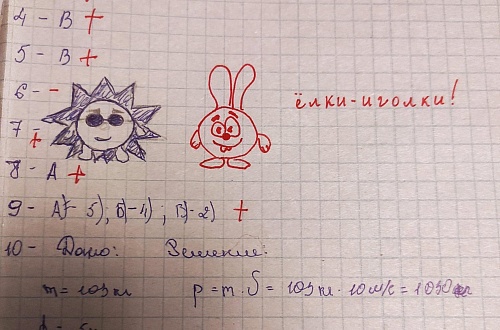 4 - В +
5 - В +
6 - -
ёлки-иголки!
7 - +
8 - А +
9 - А)- 5), Б)-4) ; В)-2) +
10 - Дано: Решение:
m = 103 кг p = m · = 103 кг · 10 м/с = 1030